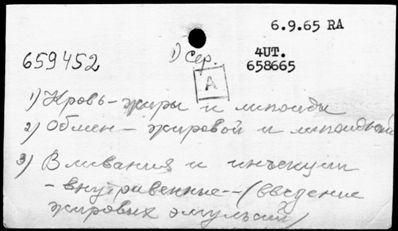 6.9.65 RA
1) Сер.
4UT.
659452
658665
А
1) Кровь - жиры и липоиды
2) Обмен - жировой и липоидный
3) Вливания и инъекции
- внутривенные - (введение
жировых эмульсий)